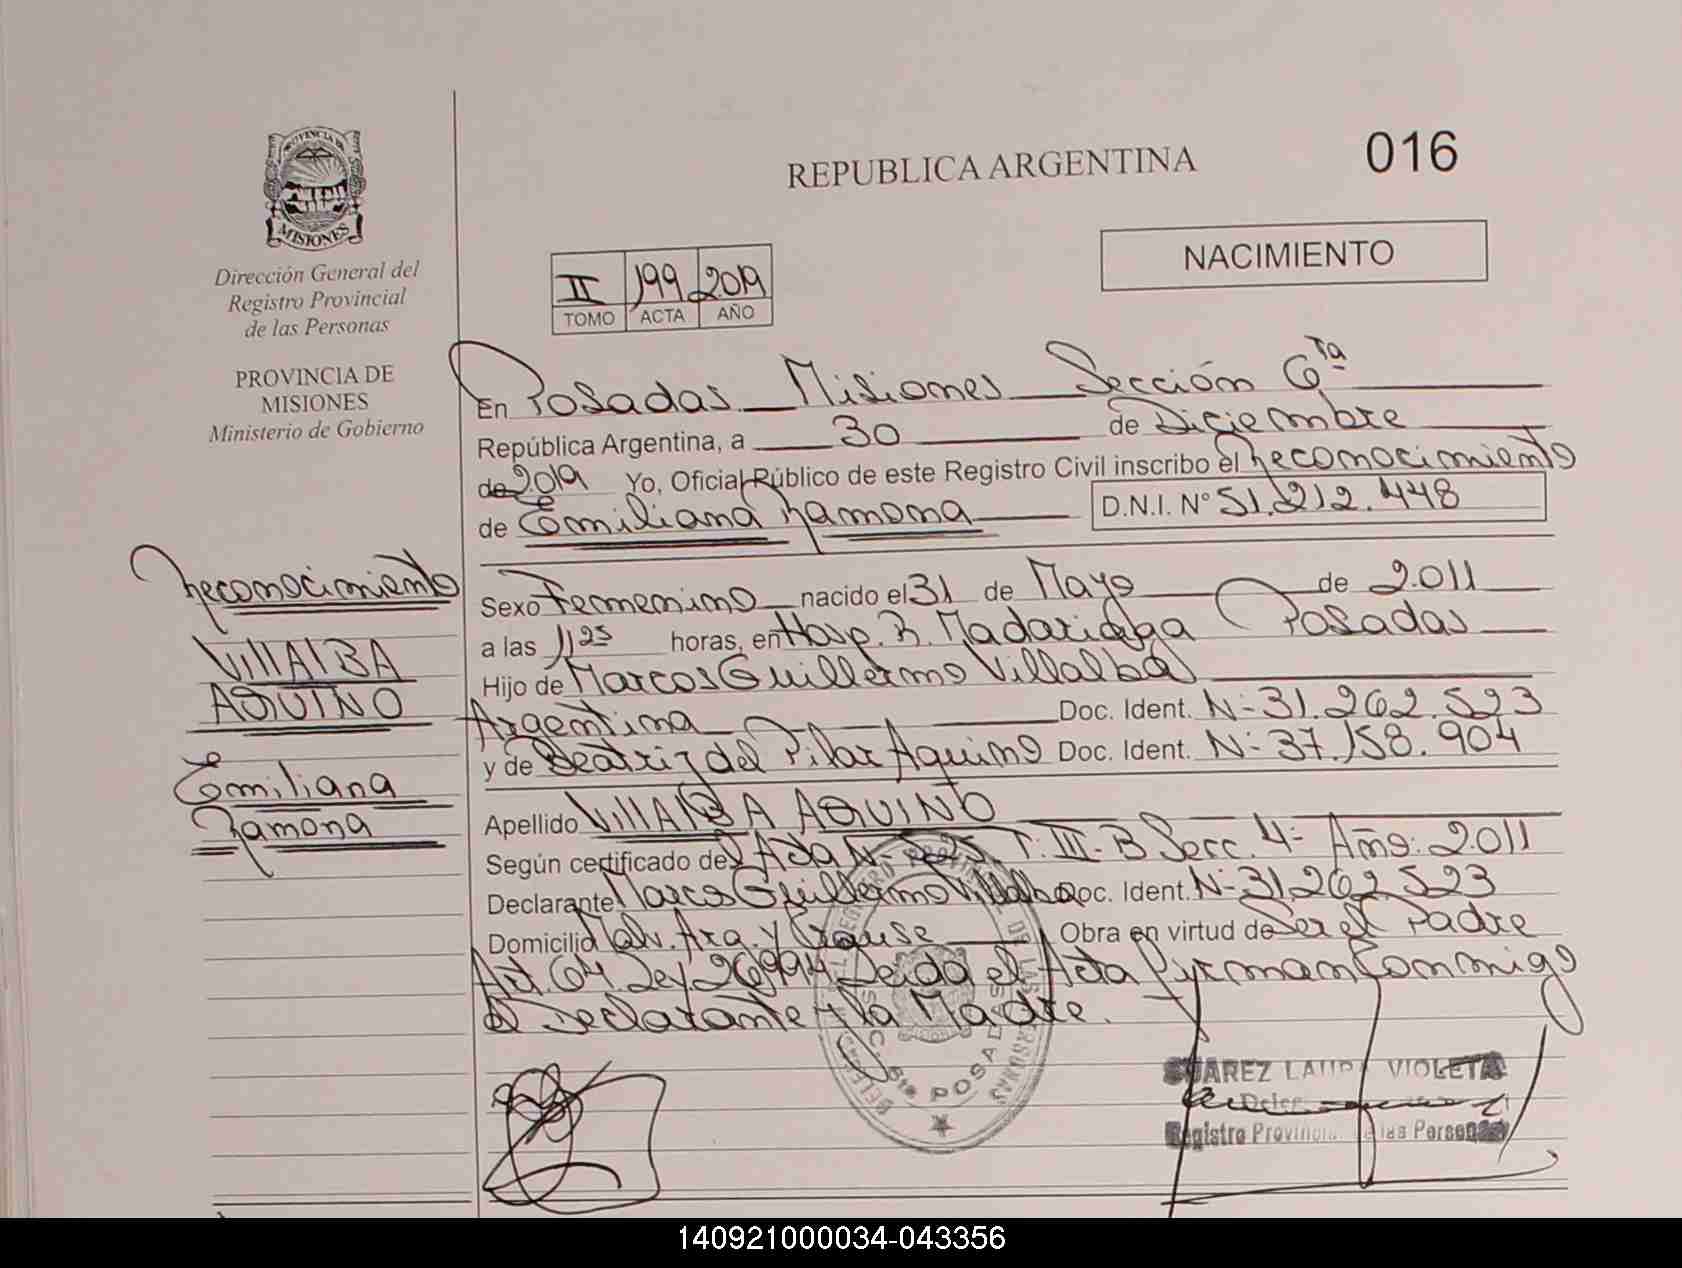 016
REPUBLICA ARGENTINA
NACIMIENTO
PROVINCIA DE
MISIONES
Dirección General del
Registro Provincial
de las Personas
PROVINCIA DE
MISIONES
Ministerio de Gobierno
II 199 2019
TOMO ACTA AÑO
En Posadas Misiones Sección 6ta
República Argentina, a 30 de Diciembre
de 2019 Yo, Oficial Público de este Registro Civil inscribo el Reconocimiento
de Emiliana Ramona D.N.I. N° 51.212.448
Reconocimiento
VIllAlBA
AQUINO
Emiliana
Ramona
Sexo Femenino nacido el 31 de Mayo de 2.011
a las 11 25 horas, en Hosp. R. Madariaga Posadas
Hijo de Marcos Guillermo Villalba
Argentina Doc. Ident. N- 31.262.523
y de Beatriz del Pilar Aquino Doc. Ident. N- 37.158.904
Apellido VIllAlBA AQUINO
Según certificado del Acta N- 525 T. III-B Secc. 4- Año: 2.011
Declarante Marcos Guillermo Villalba Doc. Ident. N- 31.262.523
Domicilio Malv. Arg. y Krause Obra en virtud de Ser el Padre
Art. 64. Ley. 26.994 Leída el Acta Firman Conmigo
el Declarante y la Madre.
SECC. 6ta POSADAS
SUAREZ LAURA VIOLETA
Registro Provincial de las Personas
140921000034-043356